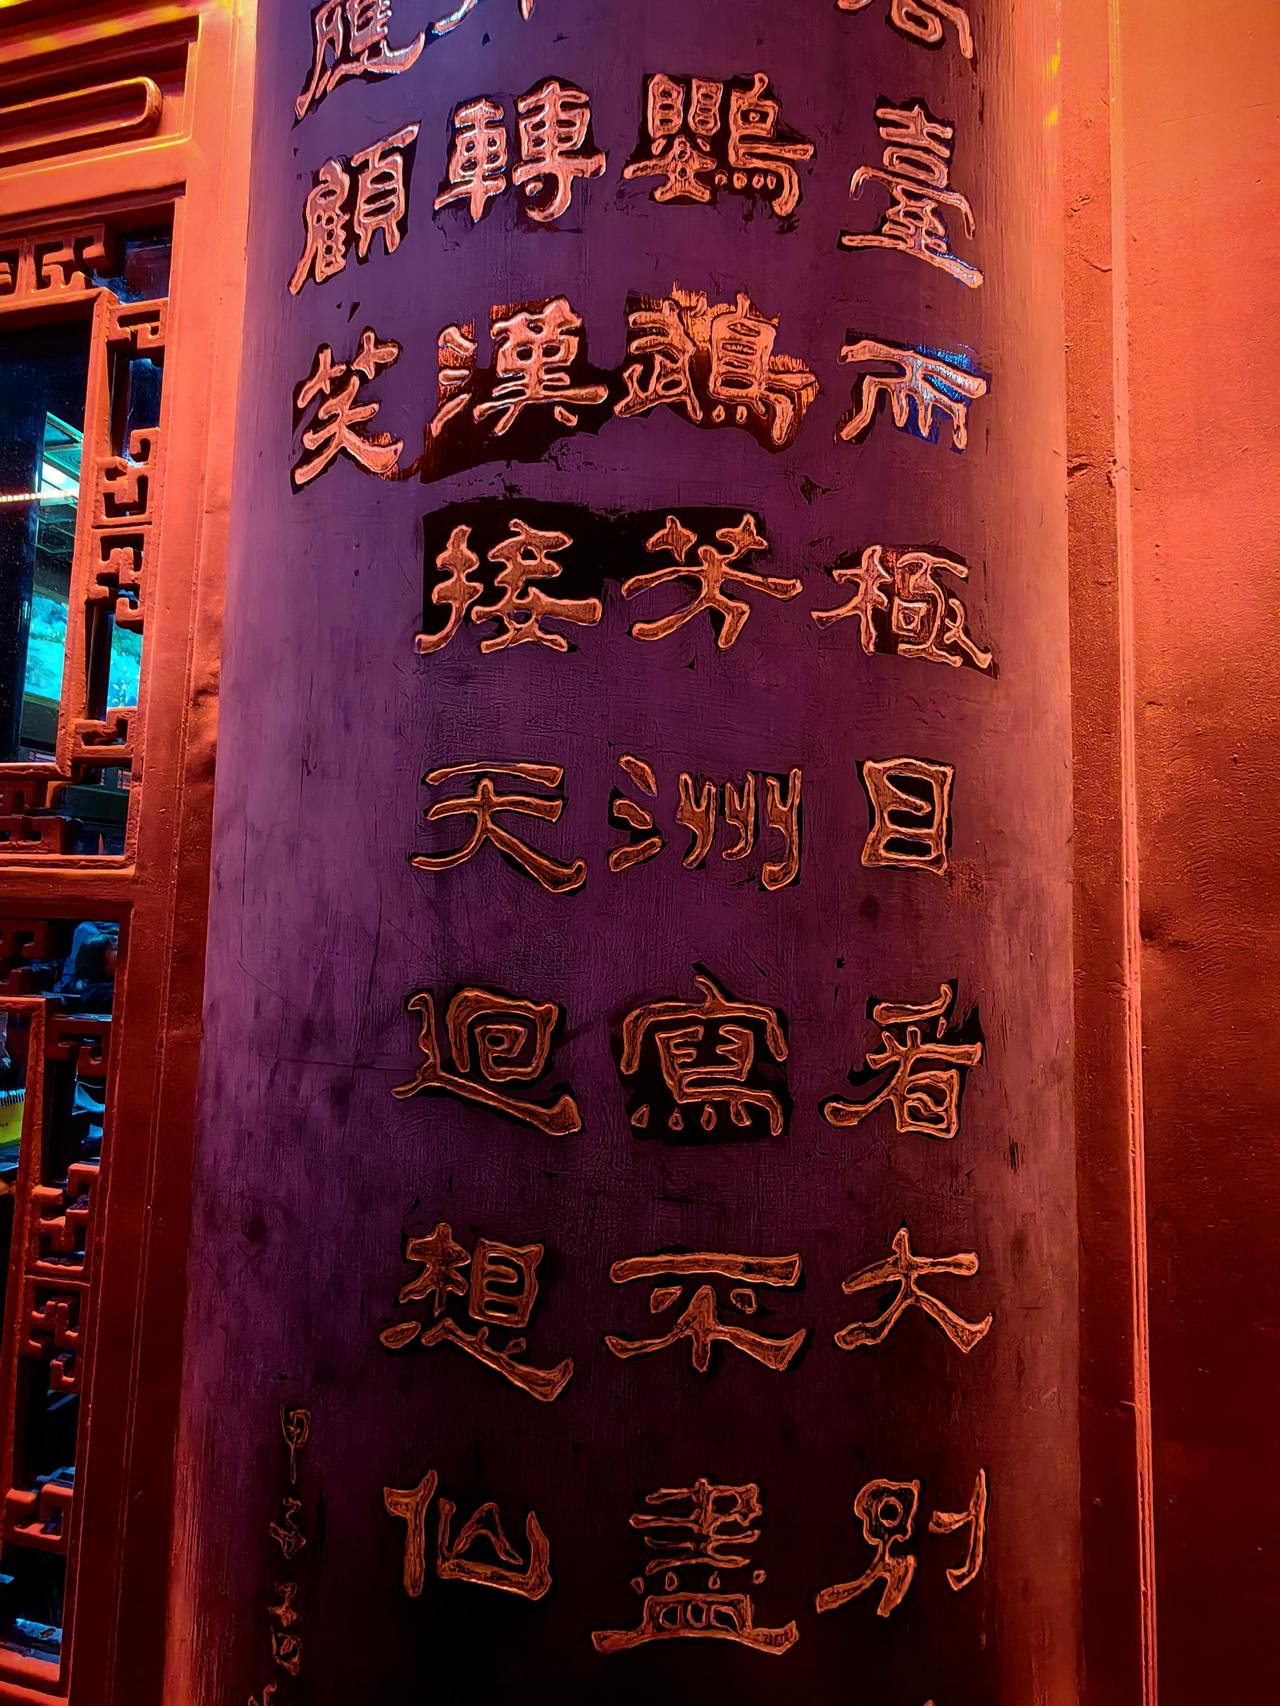 臺而極目看大別
鸚鵡芳洲寫不盡
轉漢接天迴想仙
應顧笑
甲子